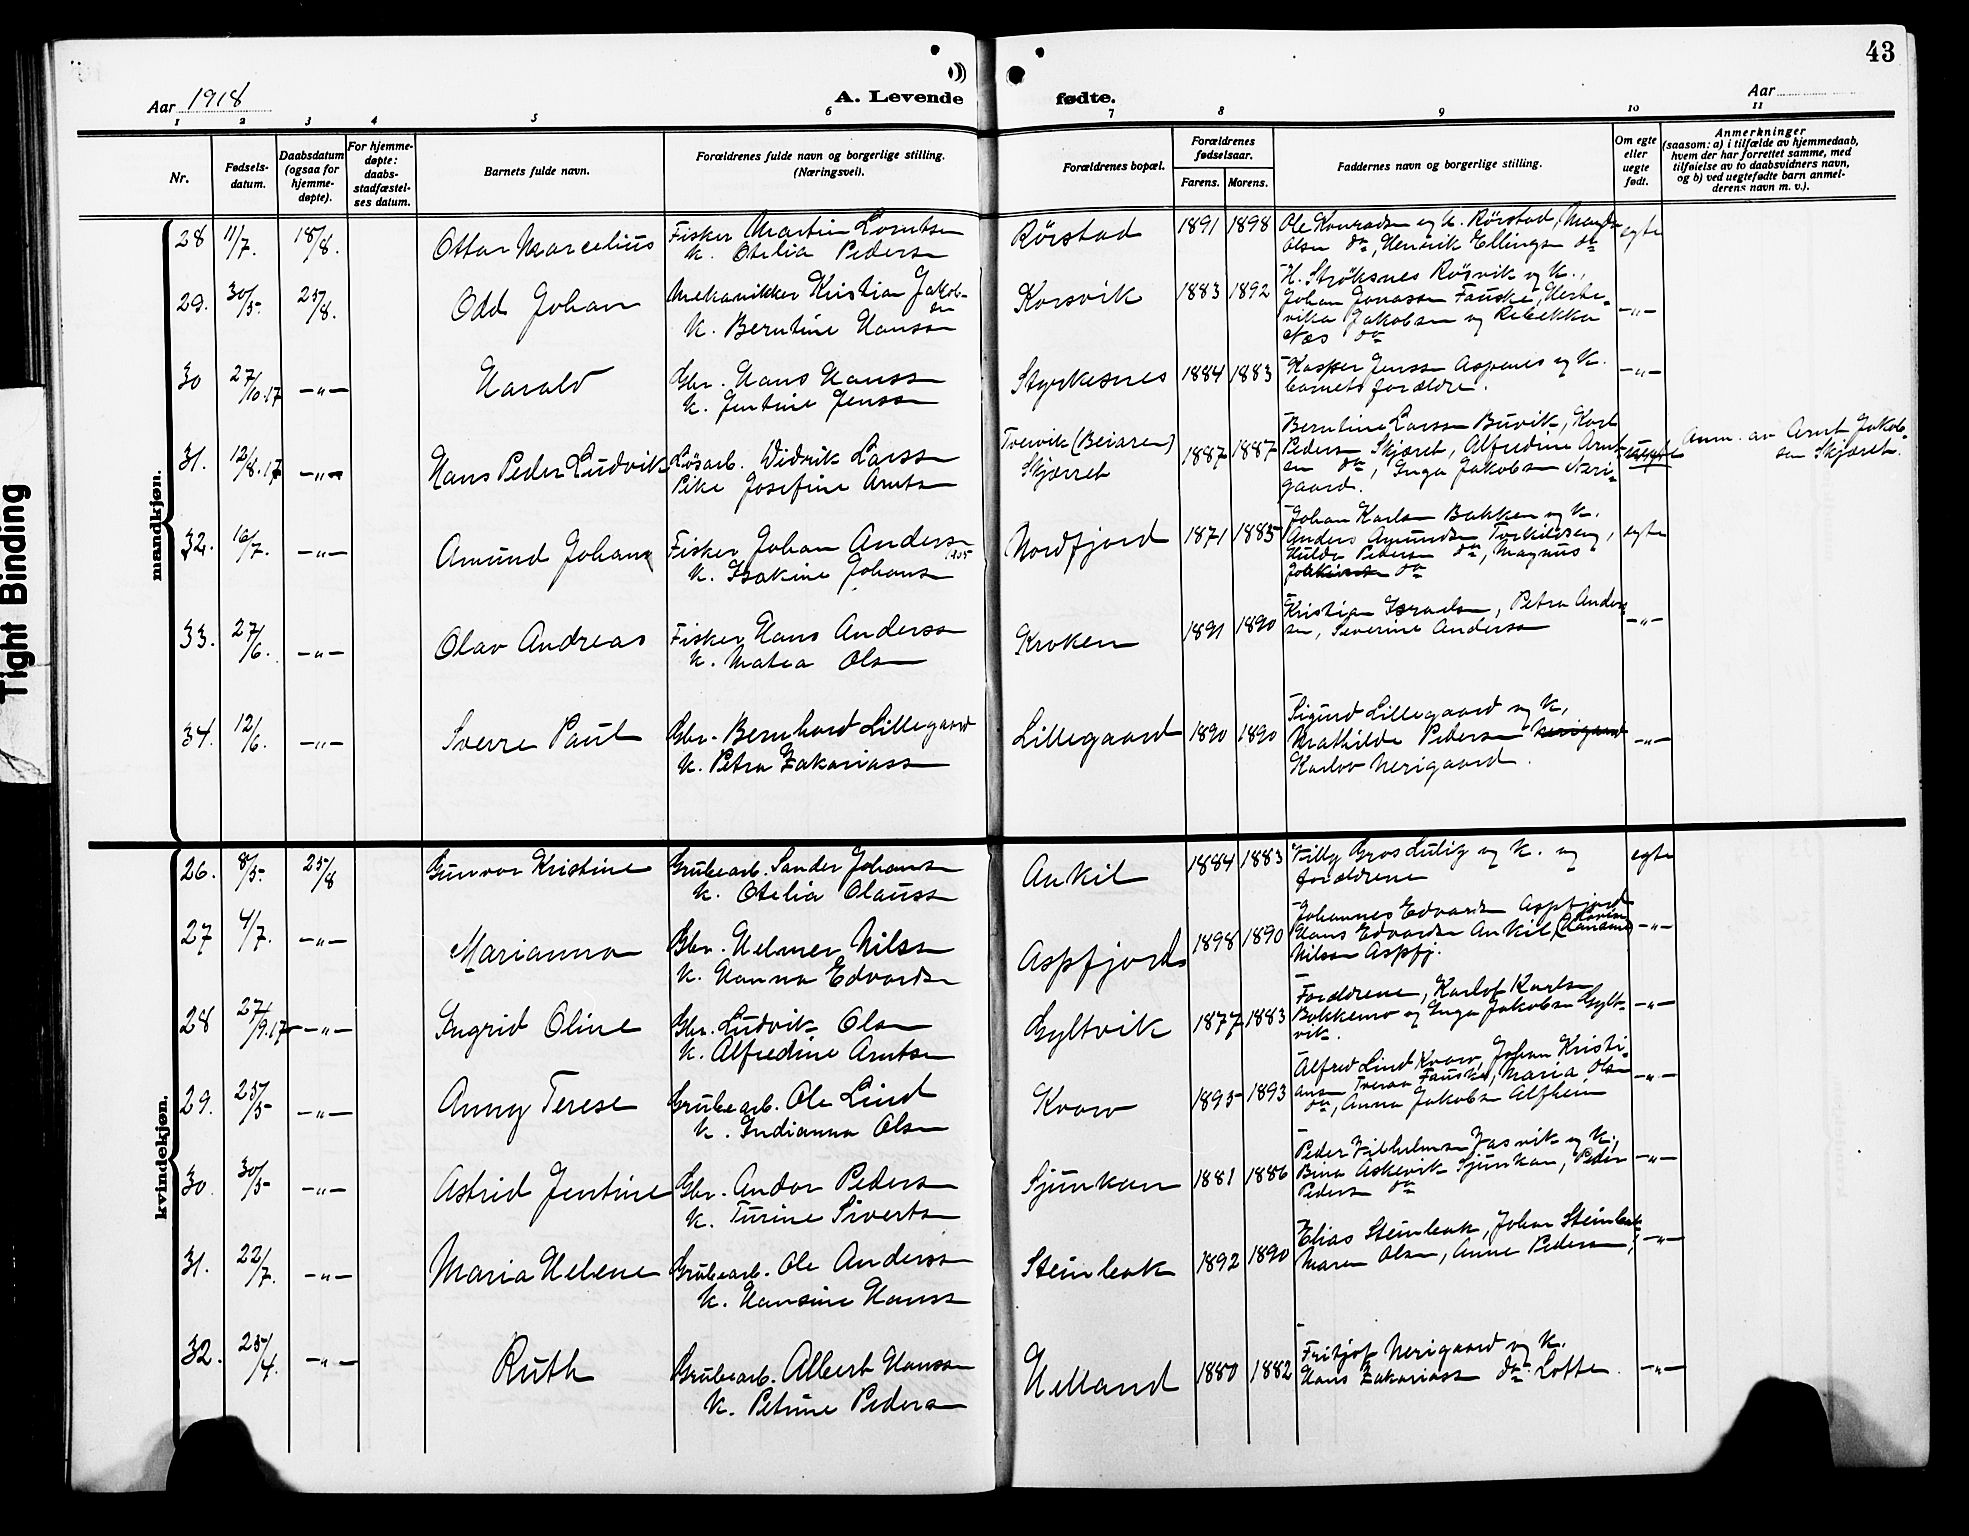 43
Aar 1918
A. Levende
fødte.
Aar
1 2 3 4 5 6 7 8 9 10 11
Nr.
Fødsels-
datum.
Daabsdatum
(ogsaa for
hjemme-
døpte).
For hjemme-
døpte:
daabs-
stadfæstel-
ses datum.
Barnets fulde navn.
Forældrenes fulde navn og borgerlige stilling.
(Næringsvei).
Forældrenes bopæl.
Forældrenes
fødselsaar.
Farens. Morens.
Faddernes navn og borgerlige stilling.
Om egte
eller
uegte
født.
Anmerkninger
(saasom: a) i tilfælde av hjemmedaab,
hvem der har forrettet samme, med
tilføielse av to daabsvidners navn,
og b) ved uegtefødte barn anmel-
derens navn m. v.).
mandkjøn.
28 11/7. 18/8. Ottar Marcelius Fisker Martin Lorntsen Rørstad 1891 1898 Ole Konradsen og k. Rørstad, egte
k. Otelia Pedersen
Olsen do, Henrik Ellingsen do
29. 30/5. 25/8. Odd Johan Mekanikker Kristian Jakob-
sen
k. Berntine Hanssen Korsvik 1883 1892 H. Strøksnes Røsvik og k.,
Johan Jonassen Fauske, Herle-
vika Jakobsen og Rebekka
Næs do -"-
30 27/10.17 -"- Harald Gbr. Hans Hanssen Styrkesnes 1884 1883 Kasper Jenssen Aspenes og k. -"-
k. Jentine Jenssen
barnets forældre.
31. 12/8.17 -"- Hans Peder Ludvik Løsarb. Didrik Larssen Tvervik (Beiaren) 1887 1887 Berntine Larssen Buvik, Karl
Pike Josefine Arntsen Skjærret
Pedersen Skjæret, Alfredine Arnt-
sen do, Inga Jakobsen Neri-
gaard. uegte Anm. av Arnt Jakob-
sen Skjæret.
32. 16/7. -"- Amund Johan Fisker Johan Andersen Nordfjord 1871 1885 Johan Karlsen Bakken og k. egte
k. Isakine Johansen
Anders Amundsen Torkildseng,
Hulda Pedersen do, Magnus
do
33. 27/6. -"- Olav Andreas Fisker Hans Anderssen Kroken 1891 1890 Kristian Israelsen, Petra Anders- -"-
k. Matea Olsen
sen, Severine Anderssen
34. 12/6. -"- Sverre Paul Gbr. Bernhard Lillegaard Lillegaard 1890 1890 Sigurd Lillegaard og k,
k. Petra Zakariassen
Mathilde Pedersen Nerigaard -"-
Karlov Nerigaard.
kvindekjøn.
26. 8/5. 25/8 Gunvor Kristine Grubearb. Sander Johansen Ankil 1884 1883 Villy Gros Lulig og k. og egte
k. Otelia Olaussen
forældrene
27 4/7. -"- Marianna Gbr. Helmer Nilsen Aspfjord 1898 1890 Johannes Edvardsen Aspfjord
k. Hanna Edvardsen
Hans Edvardsen Ankil, -"-
Nilsen Aspfj.
28 27/9.17 -"- Ingrid Oline Gbr. Ludvik Olsen Gyltvik 1877 1883 Forældrene, Karlof Karlsen -"-
k. Alfredine Arntsen
Bakkemo og Inga Jakobsen Gylt-
vik.
29. 25/5 -"- Anny Terese Grubearb. Ole Lind Kvarv 1895 1893 Alfred Lind Kvarv, Johan Kristi-
k. Indianna Olsen
ansen Tveraa Fauske, Maria Olsen -"-
do, Anna Jakobsen Alfheim
30. 30/5 -"- Astrid Jentine Gbr. Andor Pedersen Sjunkan 1881 1886 Peder Vilhelmsen Jasvik og k., -"-
k. Turine Sivertsen
Bina Askevik Sjunkan, Peder
Pedersen do
31. 22/7. -"- Maria Helene Grubearb. Ole Anderssen Steinbak 1892 1890 Elias Steinbak, Johan Steinbak -"-
k. Hansine Hanssen
Maren Olsen, Anne Pedersen,
32. 25/4. -"- Ruth Grubearb. Albert Hanssen Helland 1880 1882 Fritjof Nerigaard og k. -"-
k. Petrine Pedersen
Hans Zakariassen do. Lotte
Tight Binding